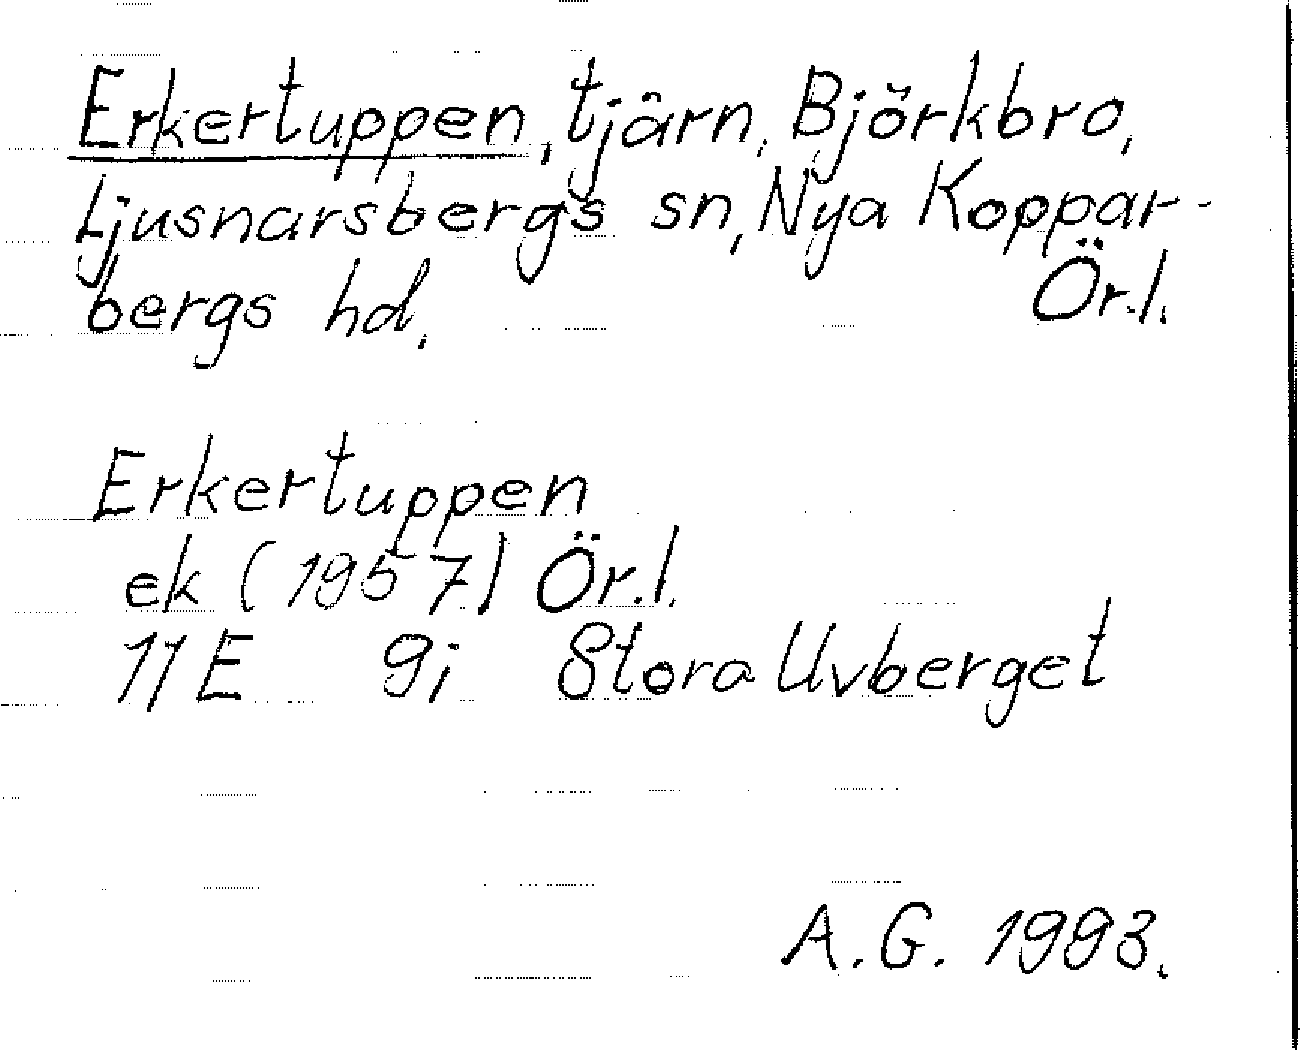 Erkertuppen, tjärn, Björkbro,
Ljusnarsbergs sn, Nya Koppar-
bergs hd. Ör.l.
Erkertuppen
ek (1957) Ör.l.
11E 9i Stora Uvberget
A.G. 1993.